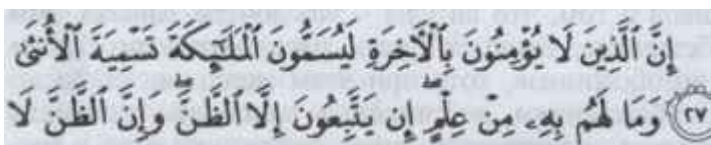 إِنَّ ٱلَّذِينَ لَا يُؤْمِنُونَ بِٱلْآخِرَةِ لَيُسَمُّونَ ٱلْمَلَـٰٓئِكَةَ تَسْمِيَةَ ٱلْأُنثَىٰ
﴿٢٧﴾ وَمَا لَهُم بِهِۦ مِنْ عِلْمٍ ۖ إِن يَتَّبِعُونَ إِلَّا ٱلظَّنَّ ۖ وَإِنَّ ٱلظَّنَّ لَا